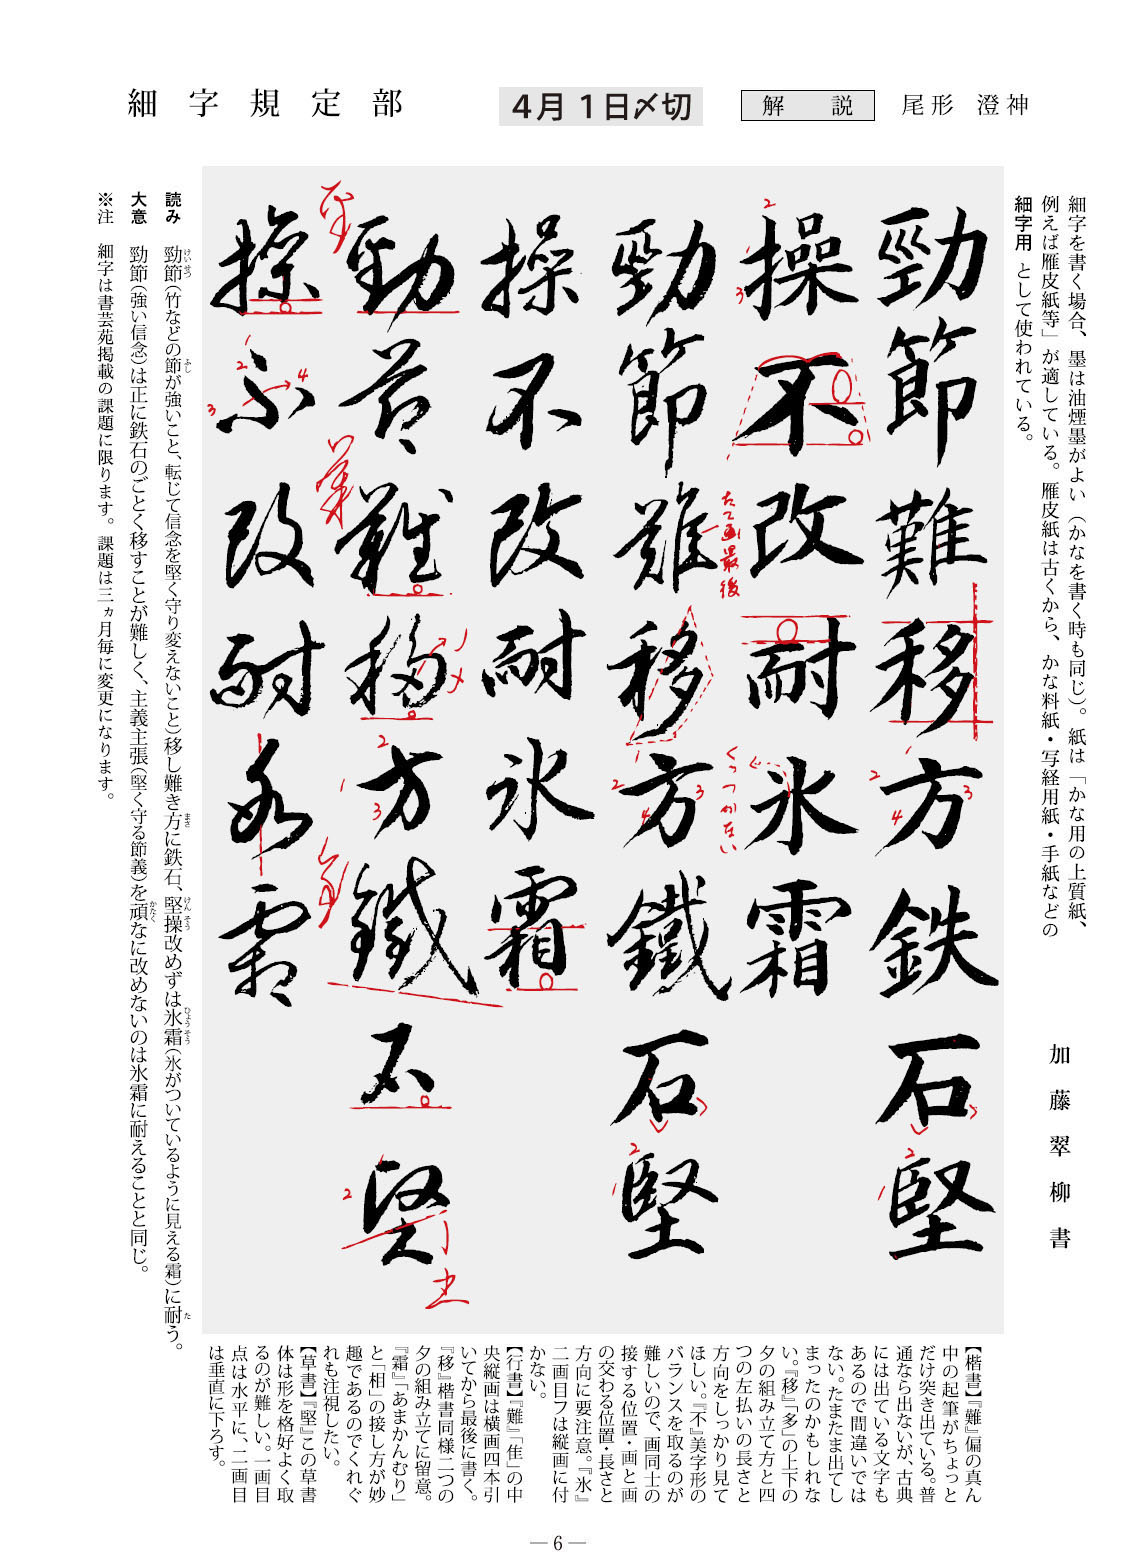 細字規定部
4月1日〆切
解説
尾形 澄神
細字を書く場合、墨は油煙墨がよい（かなを書く時も同じ）。紙は「かな用の上質紙、
例えば雁皮紙等」が適している。雁皮紙は古くから、かな料紙・写経用紙・手紙などの
細字用 として使われている。
加藤翠柳書
勁節難移方鉄石堅
操不改耐氷霜
勁節難移方鐵石堅
操不改耐氷霜
勁節難移方鐵石堅
操不改耐氷霜
たて画最後
くっつかない
読み 勁節（竹などの節が強いこと、転じて信念を堅く守り変えないこと）移し難き方に鉄石、堅操改めずは氷霜（氷がついているように見える霜）に耐う。
けいせつ
ふし
まさ
けんそう
ひょうそう
た
大意 勁節（強い信念）は正に鉄石のごとく移すことが難しく、主義主張（堅く守る節義）を頑なに改めないのは氷霜に耐えることと同じ。
かたく
※注 細字は書芸苑掲載の課題に限ります。課題は三ヵ月毎に変更になります。
【楷書】『難』偏の真ん
中の起筆がちょっと
だけ突き出ている。普
通なら出ないが、古典
には出ている文字も
あるので間違いでは
ない。たまたま出てし
まったのかもしれな
い。『移』「多」の上下の
夕の組み立て方と四
つの左払いの長さと
方向をしっかり見て
ほしい。『不』美字形の
バランスを取るのが
難しいので、画同士の
接する位置・画と画
の交わる位置・長さと
方向に要注意。『氷』
二画目フは縦画に付
かない。
【行書】『難』「隹」の中
央縦画は横画四本引
いてから最後に書く。
『移』楷書同様二つの
夕の組み立てに留意。
『霜』「あまかんむり」
と「相」の接し方が妙
趣であるのでくれぐ
れも注視したい。
【草書】『堅』この草書
体は形を格好よく取
るのが難しい。一画目
点は水平に、二画目
は垂直に下ろす。
― 6 ―